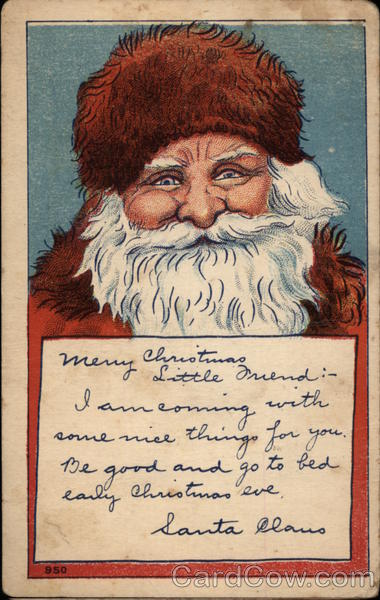 Merry Christmas
Little Friend:-
I am coming with
some nice things for you.
Be good and go to bed
early Christmas eve.
Santa Claus
950
CardCow.com